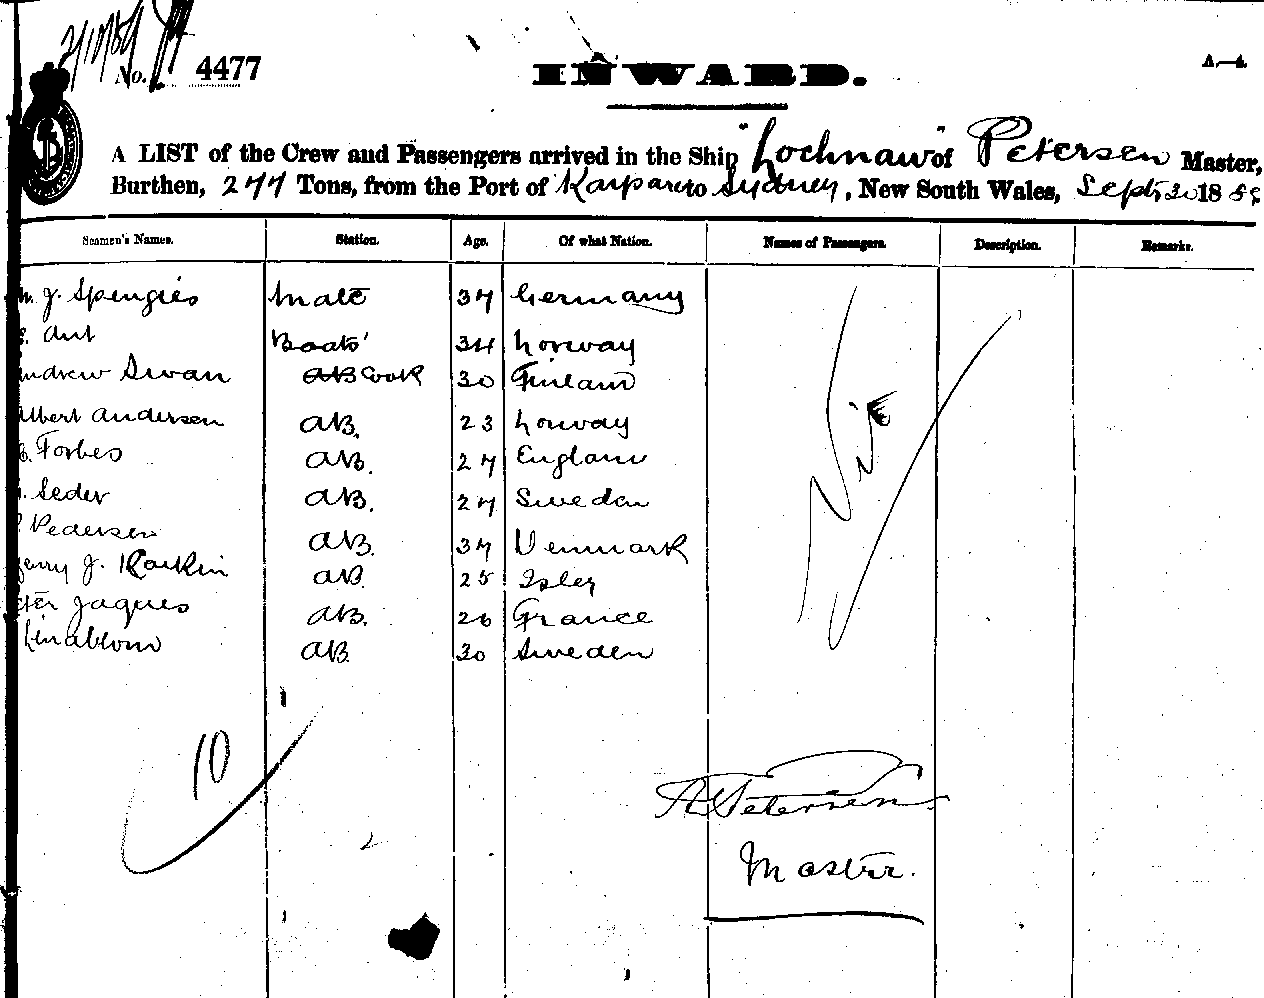 2/10/89
No. 4477
INWARD.
A.—4.
A LIST of the Crew and Passengers arrived in the Ship "Lochnaw" of Petersen Master,
Burthen, 277 Tons, from the Port of Kaipara to Sydney, New South Wales, Sept 30 1889
Seamen's Names. Station. Age. Of what Nation. Names of Passengers. Description. Remarks.
J. Spengies Mate 37 Germany
Ant Boats' 34 Norway
Andrew Swan AB Cook 30 Finland
Albert Andersen AB. 23 Norway
Forbes AB. 27 England
Seder AB. 27 Sweden
P. Pedersen AB. 37 Denmark
Henry J. Rankin AB 25
Peter Jaques AB. 26 France
Lindblom AB. 30 Sweden
Nil
10
A Petersen
Master.